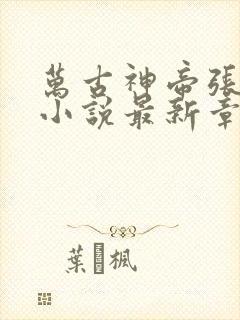 萬古神帝張
小說最新章
葉楓